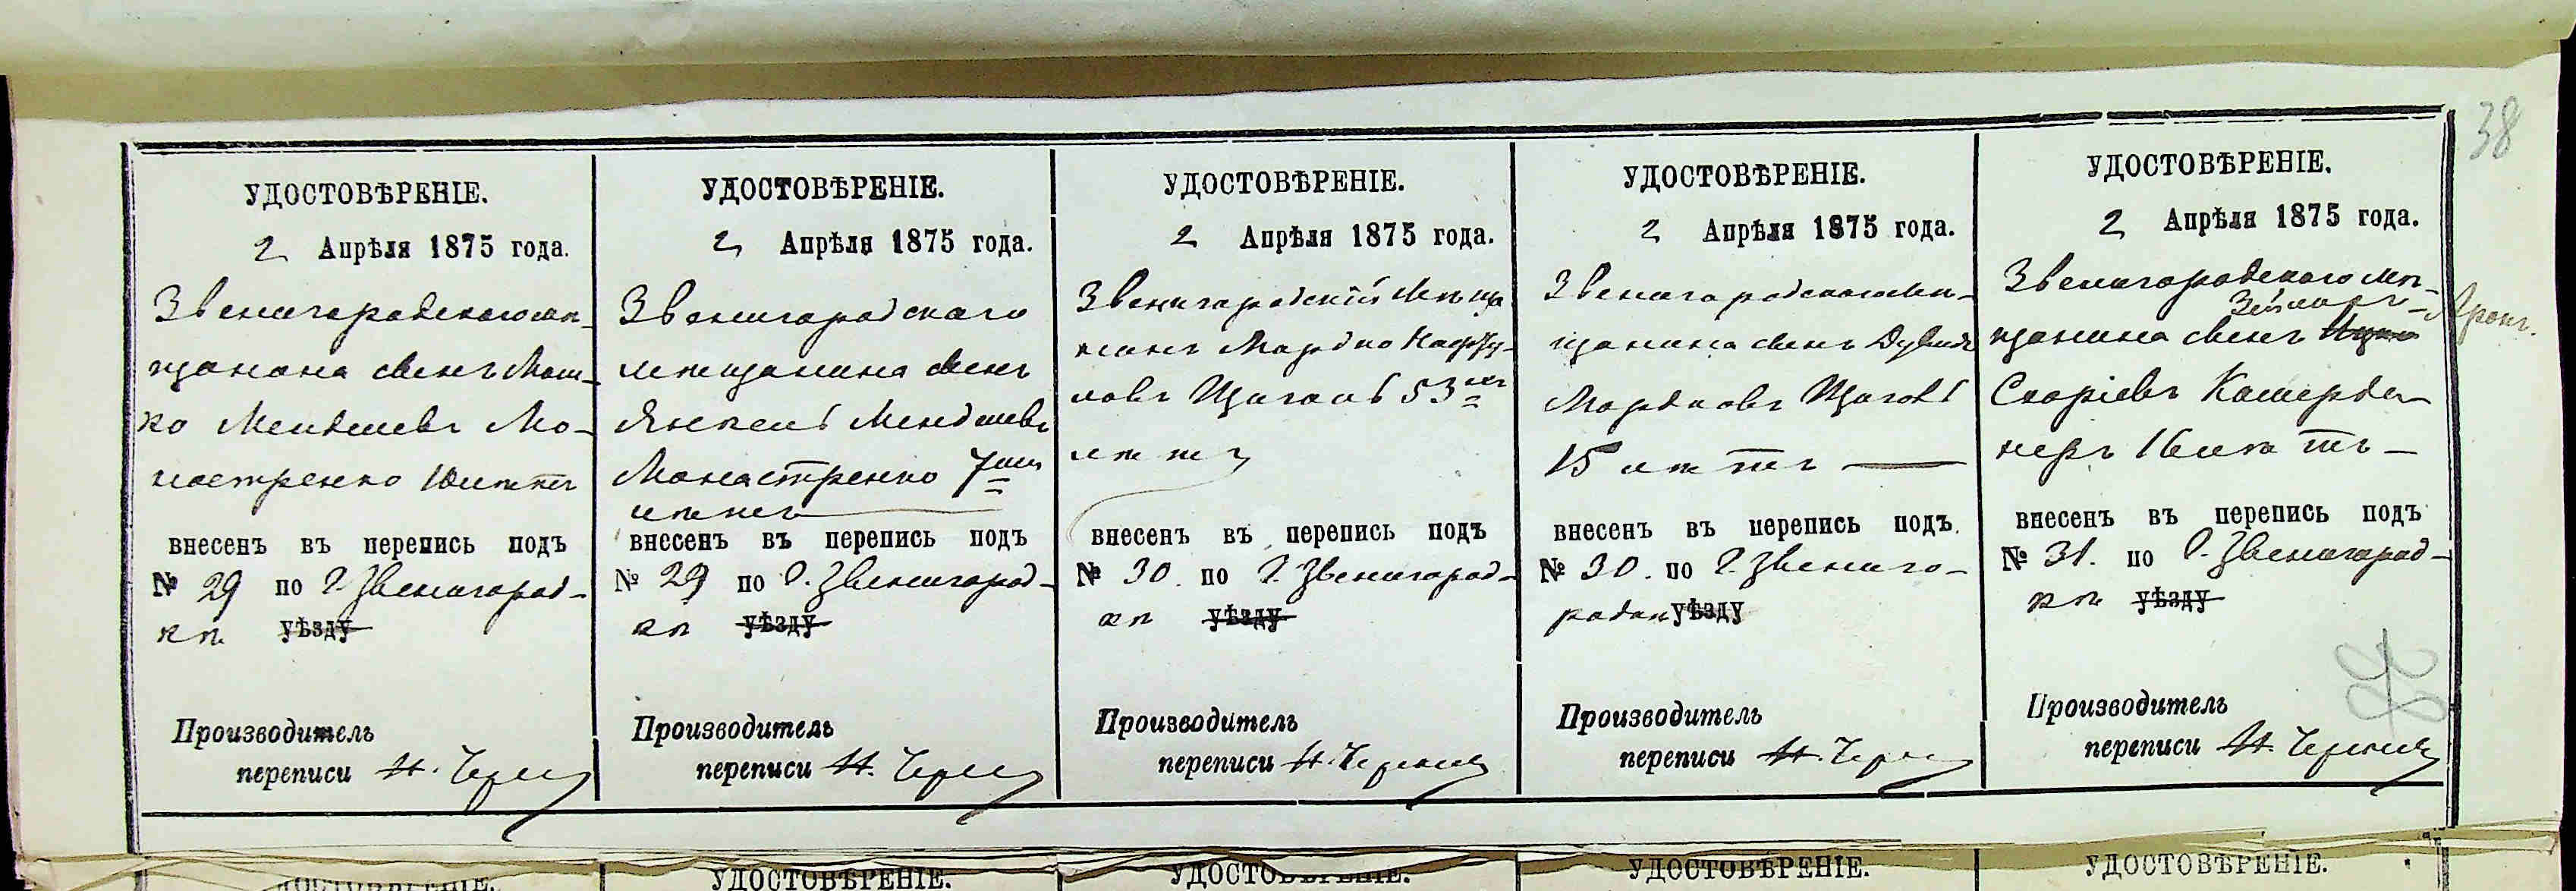 38
УДОСТОВѢРЕНІЕ.
2 Апрѣля 1875 года.
Звенигородскаго мѣ-
щанина сынъ Мош-
ко Менделевъ Мо-
настренко 10 лѣтъ
внесенъ въ перепись подъ
№ 29 по г. Звенигород-
кѣ уѣзду
Производитель
переписи
УДОСТОВѢРЕНІЕ.
2 Апрѣля 1875 года.
Звенигородскаго
мѣщанина сынъ
Янкель Менделевъ
Монастренко 7ми
лѣтъ
внесенъ въ перепись подъ
№ 29 по г. Звенигород-
кѣ уѣзду
Производитель
переписи
УДОСТОВѢРЕНІЕ.
2 Апрѣля 1875 года.
Звенигородскій мѣща
нинъ Мордко
Цыганъ 53
лѣтъ
внесенъ въ перепись подъ
№ 30. по г. Звенигород-
кѣ уѣзду
Производитель
переписи
УДОСТОВѢРЕНІЕ.
2 Апрѣля 1875 года.
Звенигородскаго мѣ-
щанина сынъ Дувидъ
Мордковъ
15 лѣтъ
внесенъ въ перепись подъ
№ 30. по г. Звениго-
родкѣ уѣзду
Производитель
переписи
УДОСТОВѢРЕНІЕ.
2 Апрѣля 1875 года.
Звенигородскаго мѣ-
щанина сынъ Ицко
16 лѣтъ
внесенъ въ перепись подъ
№ 31. по г. Звенигород-
кѣ уѣзду
Производитель
переписи
УДОСТОВѢРЕНІЕ.
УДОСТОВѢРЕНІЕ.
УДОСТОВѢРЕНІЕ.
УДОСТОВѢРЕНІЕ.
УДОСТОВѢРЕНІЕ.